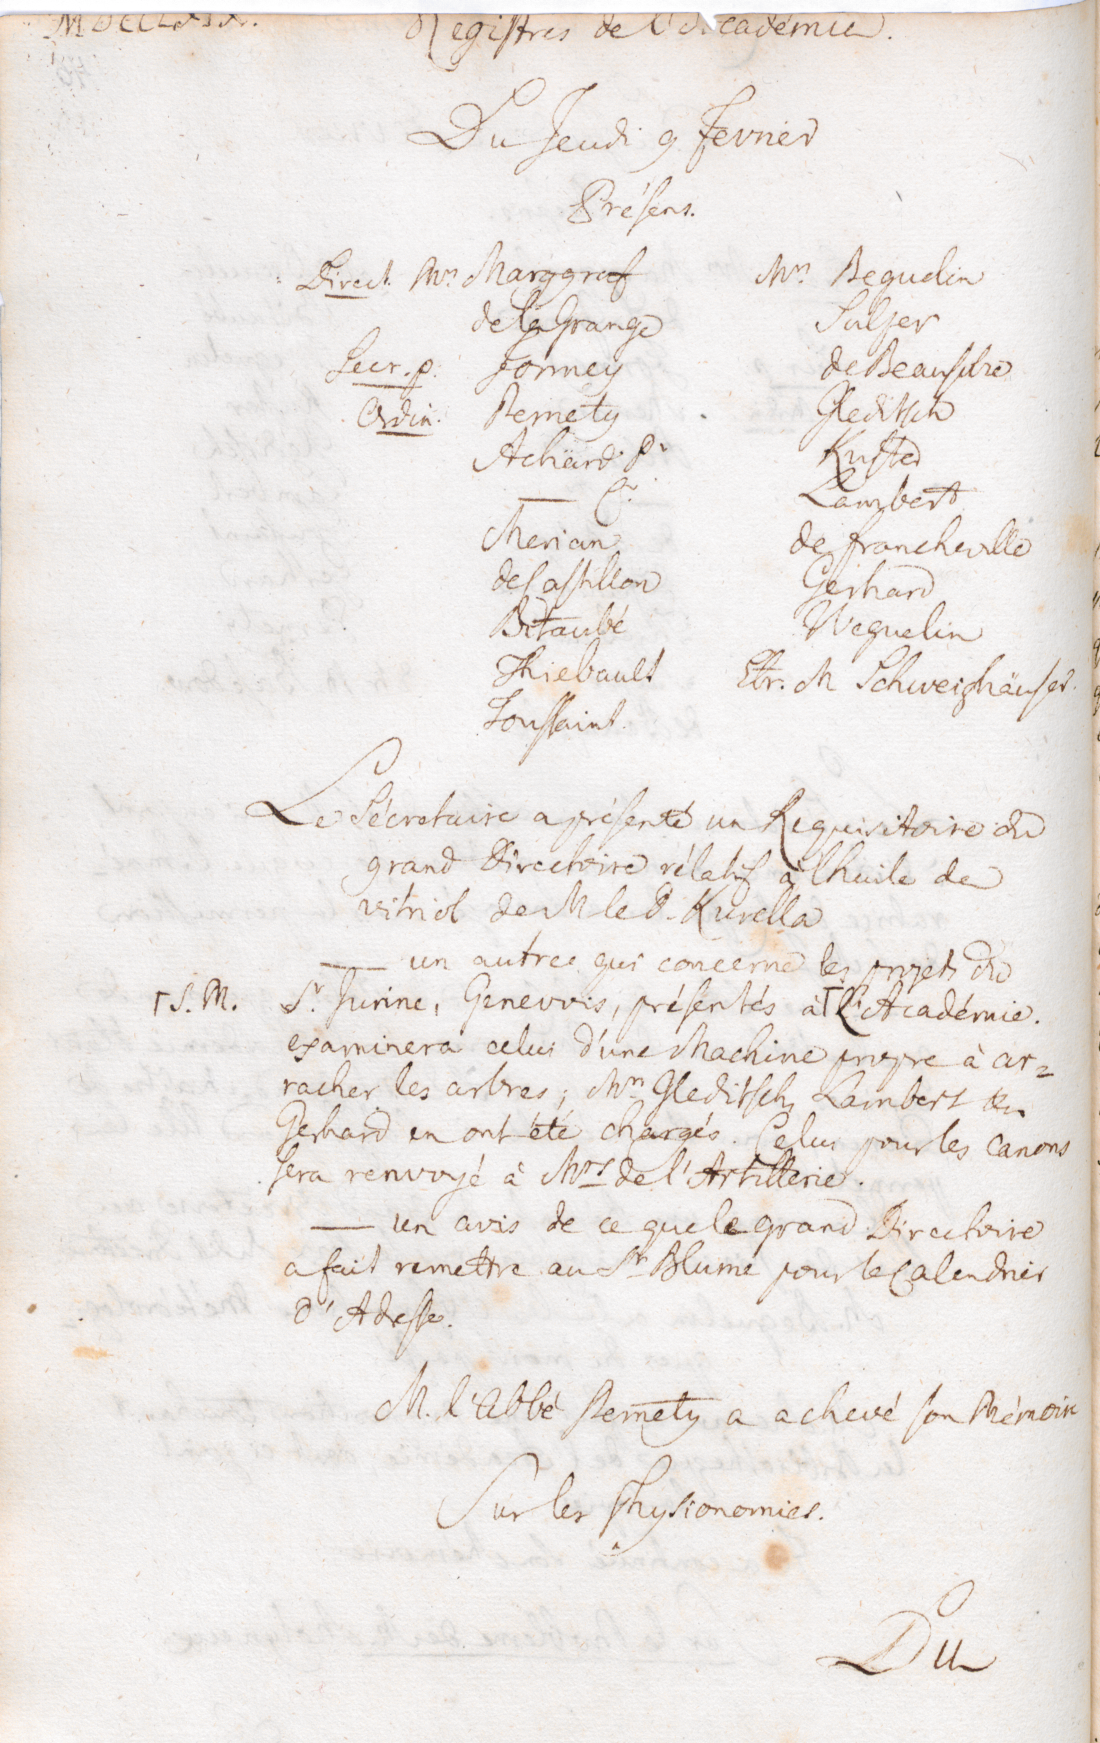 MDCCLXIX.
Registres de l'Académie.
Du Jeudi 9 Fevrier
Présens.
Direct. Mrs Marggraf
de la Grange
Secr. p. Formey
Ordin. Pernety
Achard Pr
— Cr
Merian
de Castillon
Bitaubé
Thiebault
Toussaint.
Mrs Beguelin
Sulzer
de Beausobre
Gleditsch
Kuster
Lambert
de Francheville
Gerhard
Weguelin
Etr. M Schweighäuser.
Le Sécretaire a présenté un Requisitoire du
grand Directoire rélatif à l'huile de
vitriol de M le D. Kurella
— un autre qui concerne les projets du
Sr Jurine, Genevois, présentés à⌈ L'Académie.
⌈S. M.
examinera celui d'une Machine propre à ar=
racher les arbres; Mrs Gleditsch, Lambert &
Gerhard en ont été chargés. Celui pour les canons
sera renvoyé à Mrs de l'Artillerie.
— un avis de ce que le grand Directoire
a fait remettre au Sr Blume pour le Calendrier
d'Adresse.
M. l'Abbé Pernety a achevé son Mémoire
Sur les Physionomies.
Du